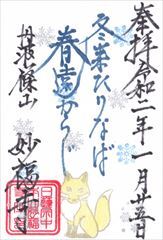 奉拝 令和二年一月廿五日
冬来たりなば
春遠からじ
丹波篠山 妙福寺